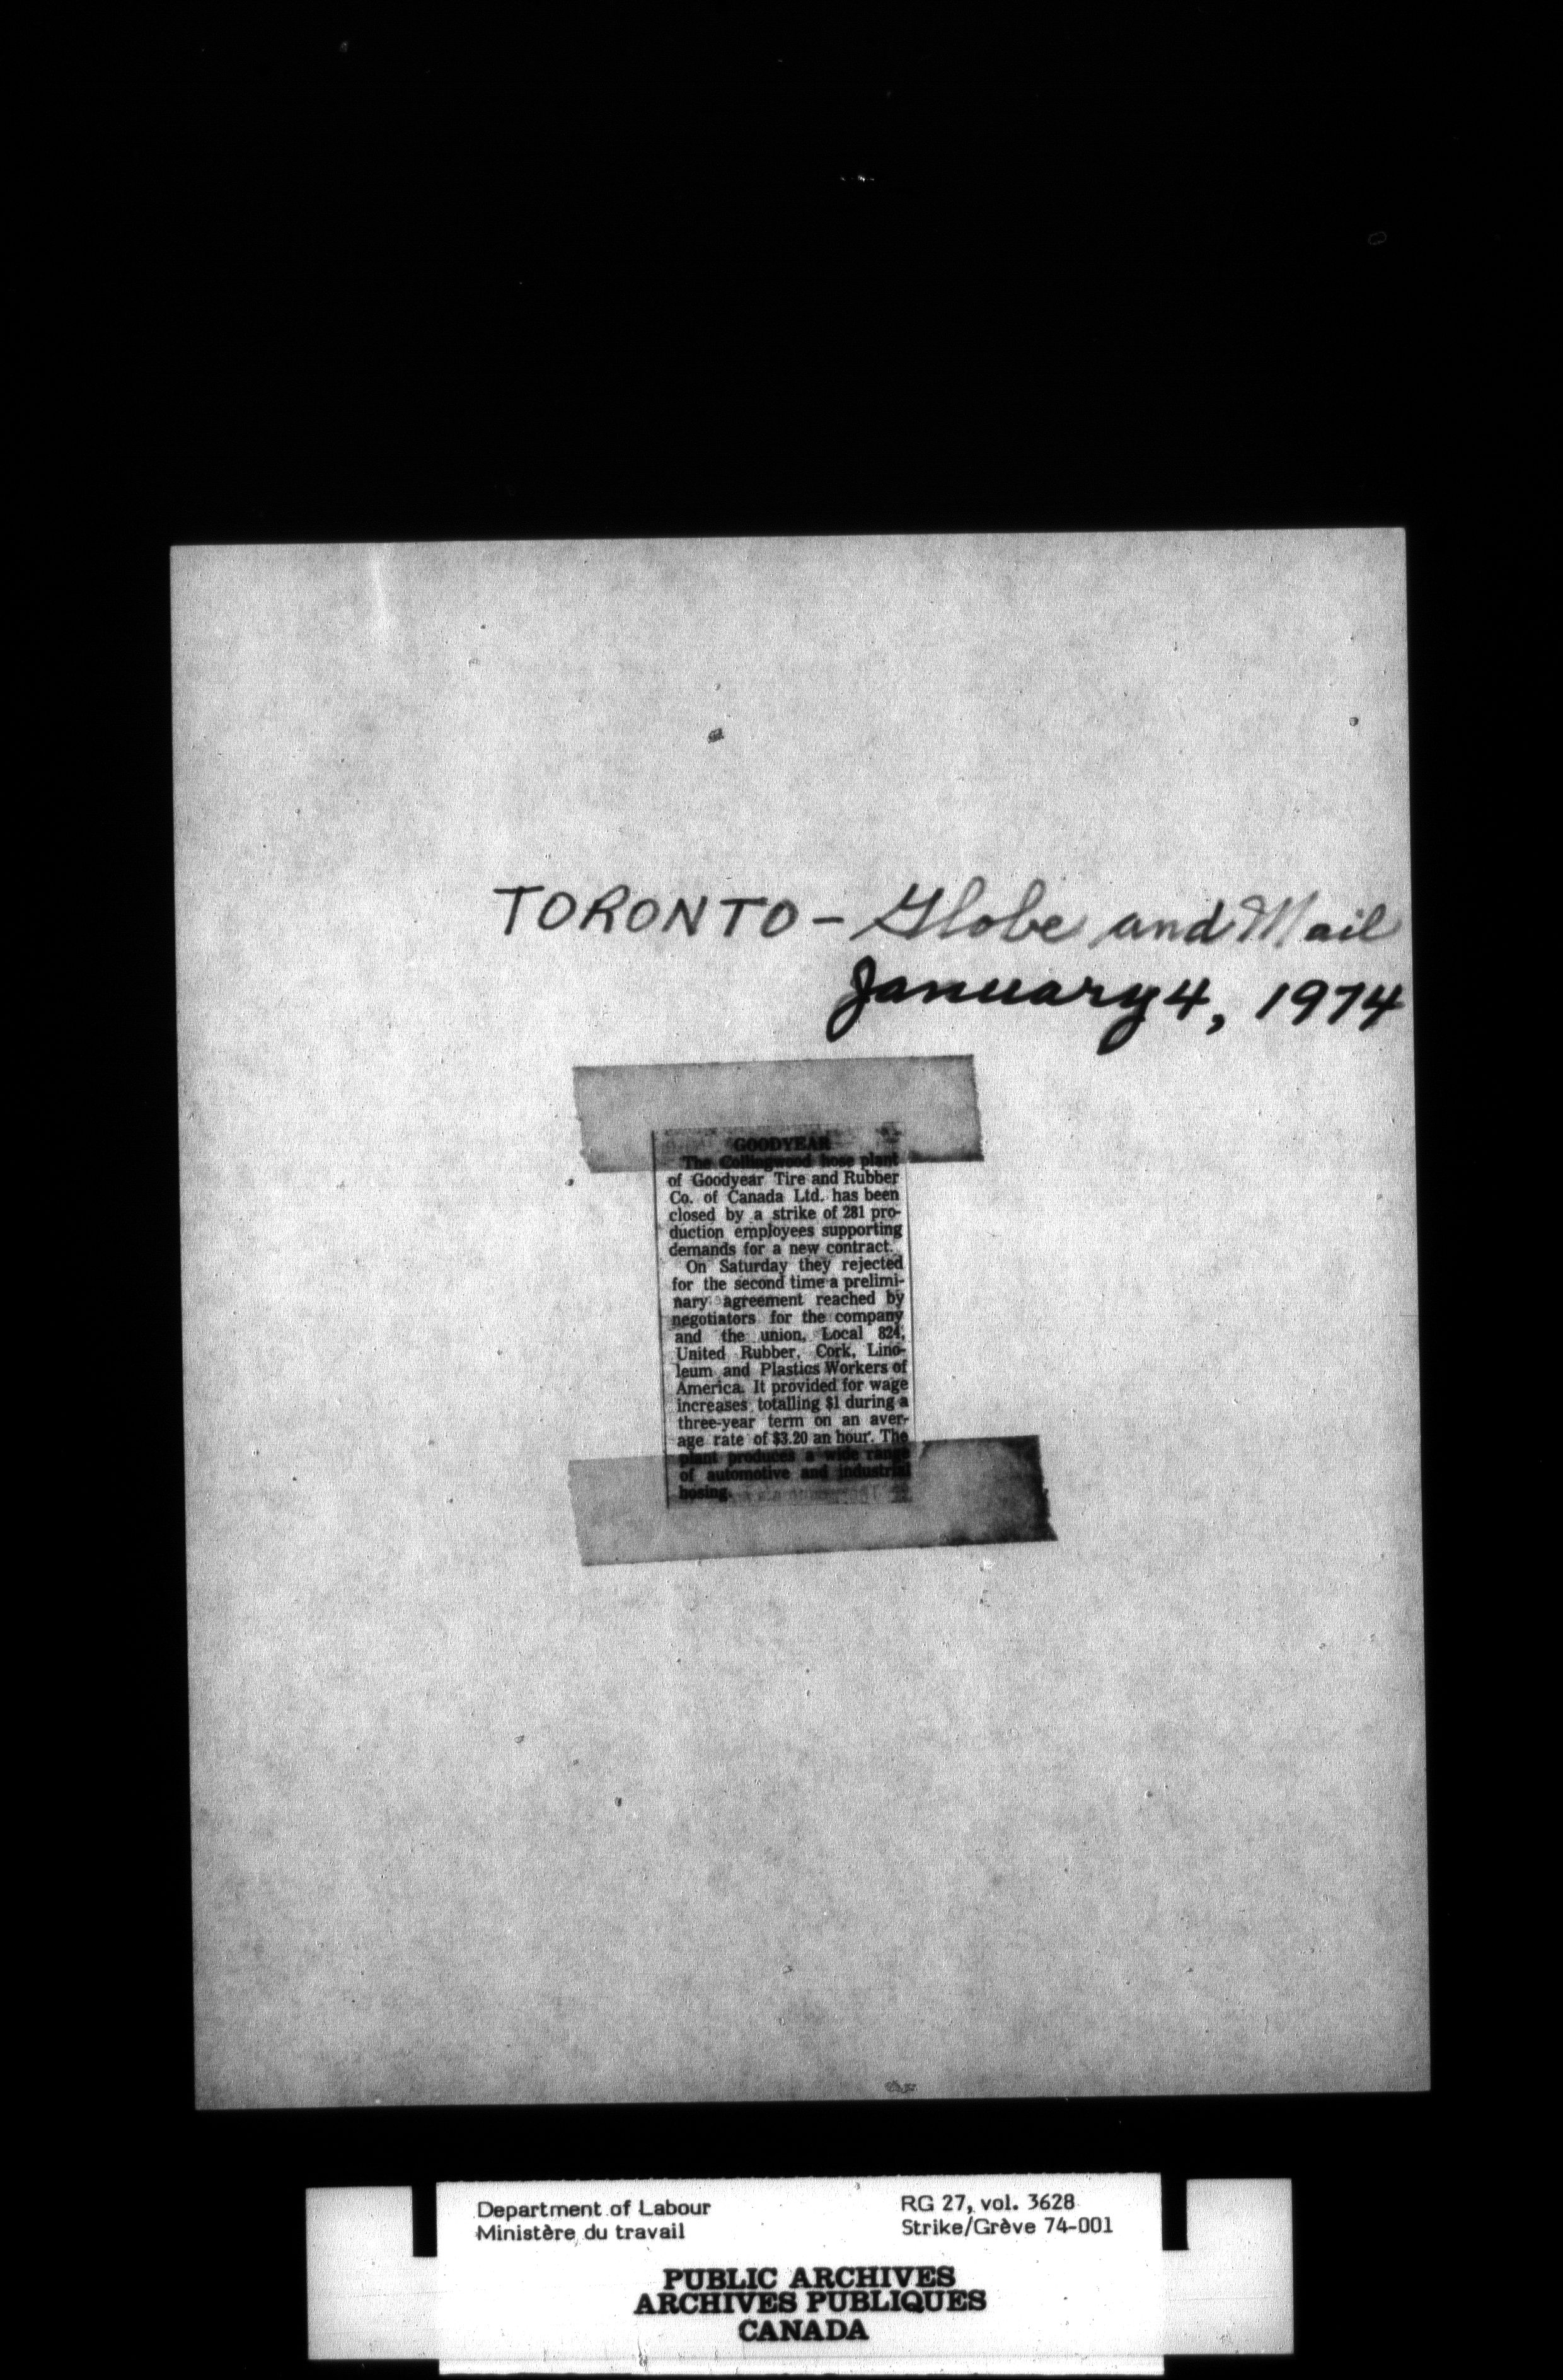 TORONTO - Globe and Mail
January 4, 1974
GOODYEAR
The Collingwood hose plant
of Goodyear Tire and Rubber
Co. of Canada Ltd. has been
closed by a strike of 281 pro-
duction employees supporting
demands for a new contract.
On Saturday they rejected
for the second time a prelimi-
nary agreement reached by
negotiators for the company
and the union, Local 824,
United Rubber, Cork, Lino-
leum and Plastics Workers of
America. It provided for wage
increases totalling $1 during a
three-year term on an aver-
age rate of $3.20 an hour. The
plant produces a wide range
of automotive and industrial
hosing.
Department of Labour
Ministère du travail
RG 27, vol. 3628
Strike/Grève 74-001
PUBLIC ARCHIVES
ARCHIVES PUBLIQUES
CANADA